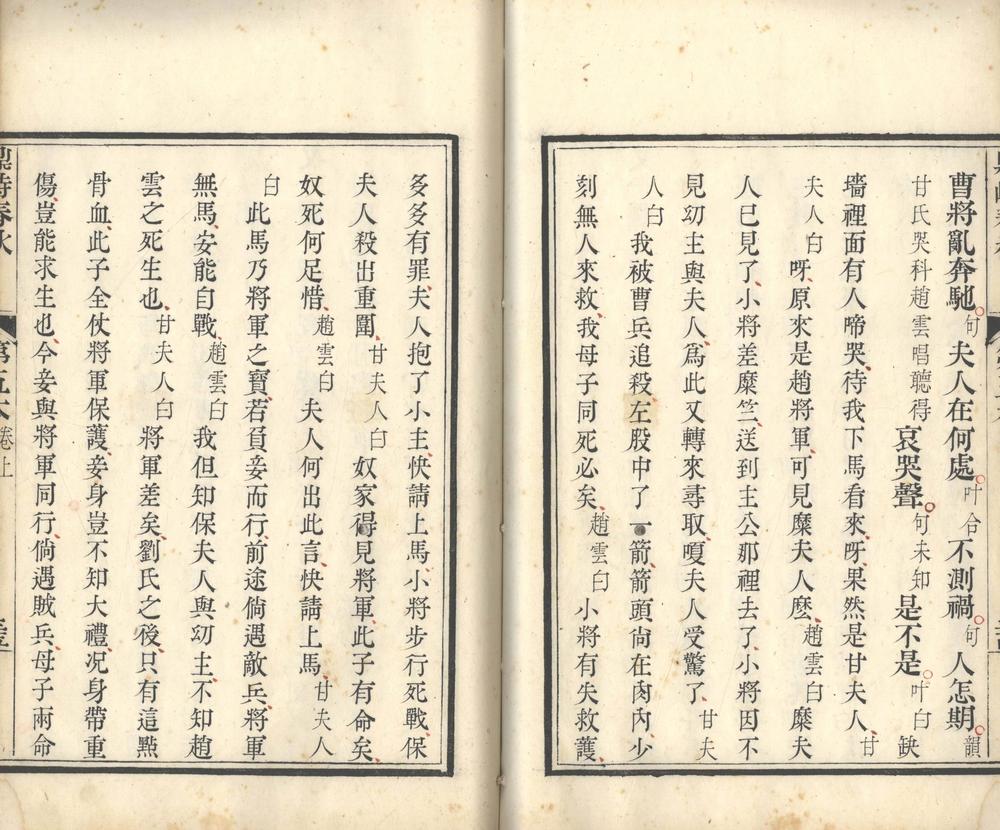 曹將亂奔馳句夫人在何處叶合不測禍句人怎期韻
甘氏哭科趙雲唱聽得哀哭聲句未知是不是叶白缺
墻裡面有人啼哭待我下馬看來呀果然是甘夫人甘
夫人白呀原來是趙將軍可見糜夫人麽趙雲白糜夫
人已見了小將差糜竺送到主公那裡去了小將因不
見幼主與夫人爲此又轉來尋取嗄夫人受驚了甘夫
人白我被曹兵追殺左股中了一箭箭頭尙在肉內少
刻無人來救我母子同死必矣趙雲白小將有失救護
多多有罪夫人抱了小主快請上馬小將步行死戰保
夫人殺出重圍甘夫人白奴家得見將軍此子有命矣
奴死何足惜趙雲白夫人何出此言快請上馬甘夫人
白此馬乃將軍之寶若負妾而行前途倘遇敵兵將軍
無馬安能自戰趙雲白我但知保夫人與幼主不知趙
雲之死生也甘夫人白將軍差矣劉氏之後只有這點
骨血此子全仗將軍保護妾身豈不知大禮况身帶重
傷豈能求生也今妾與將軍同行倘遇賊兵母子兩命
鼎峙春秋 第五本卷上